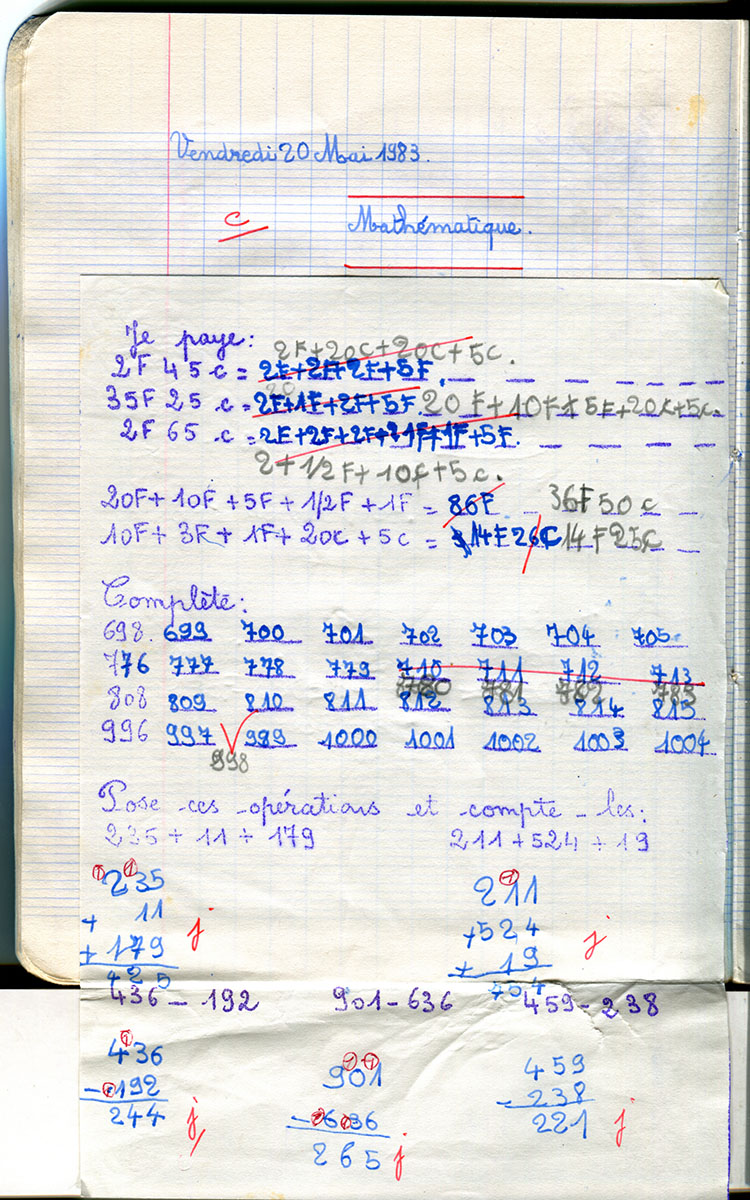 Vendredi 20 Mai 1983.
C
Mathématique.
Je paye:
2F+20C+20C+5C.
2F 45c = 2F+2F+2F+5F.
35F 25c = 2F+1F+2F+5F. 20F+10F+5F+20c+5c.
2F 65c = 2F+2F+2F+1F+1F+5F.
2+1/2F+10c+5c.
20F+10F+5F+1/2F+1F = 86F 36F50c
10F+3F+1F+20c+5c = 14F26C 14F25C
Complète:
698. 699 700 701 702 703 704 705
776 777 778 779 710 711 712 713
780 781 782 783
808 809 810 811 812 813 814 815
996 997 989 1000 1001 1002 1003 1004
998
Pose ces opérations et compte-les:
235+11+179 211+524+19
1 1 235 1 211
+ 11 j +524 j
+179 + 19
425 754
436-192 901-636 459-238
1 436 1 1 901 459
-1 192 -1 6 1 36 -238
244 j 265 j 221 j